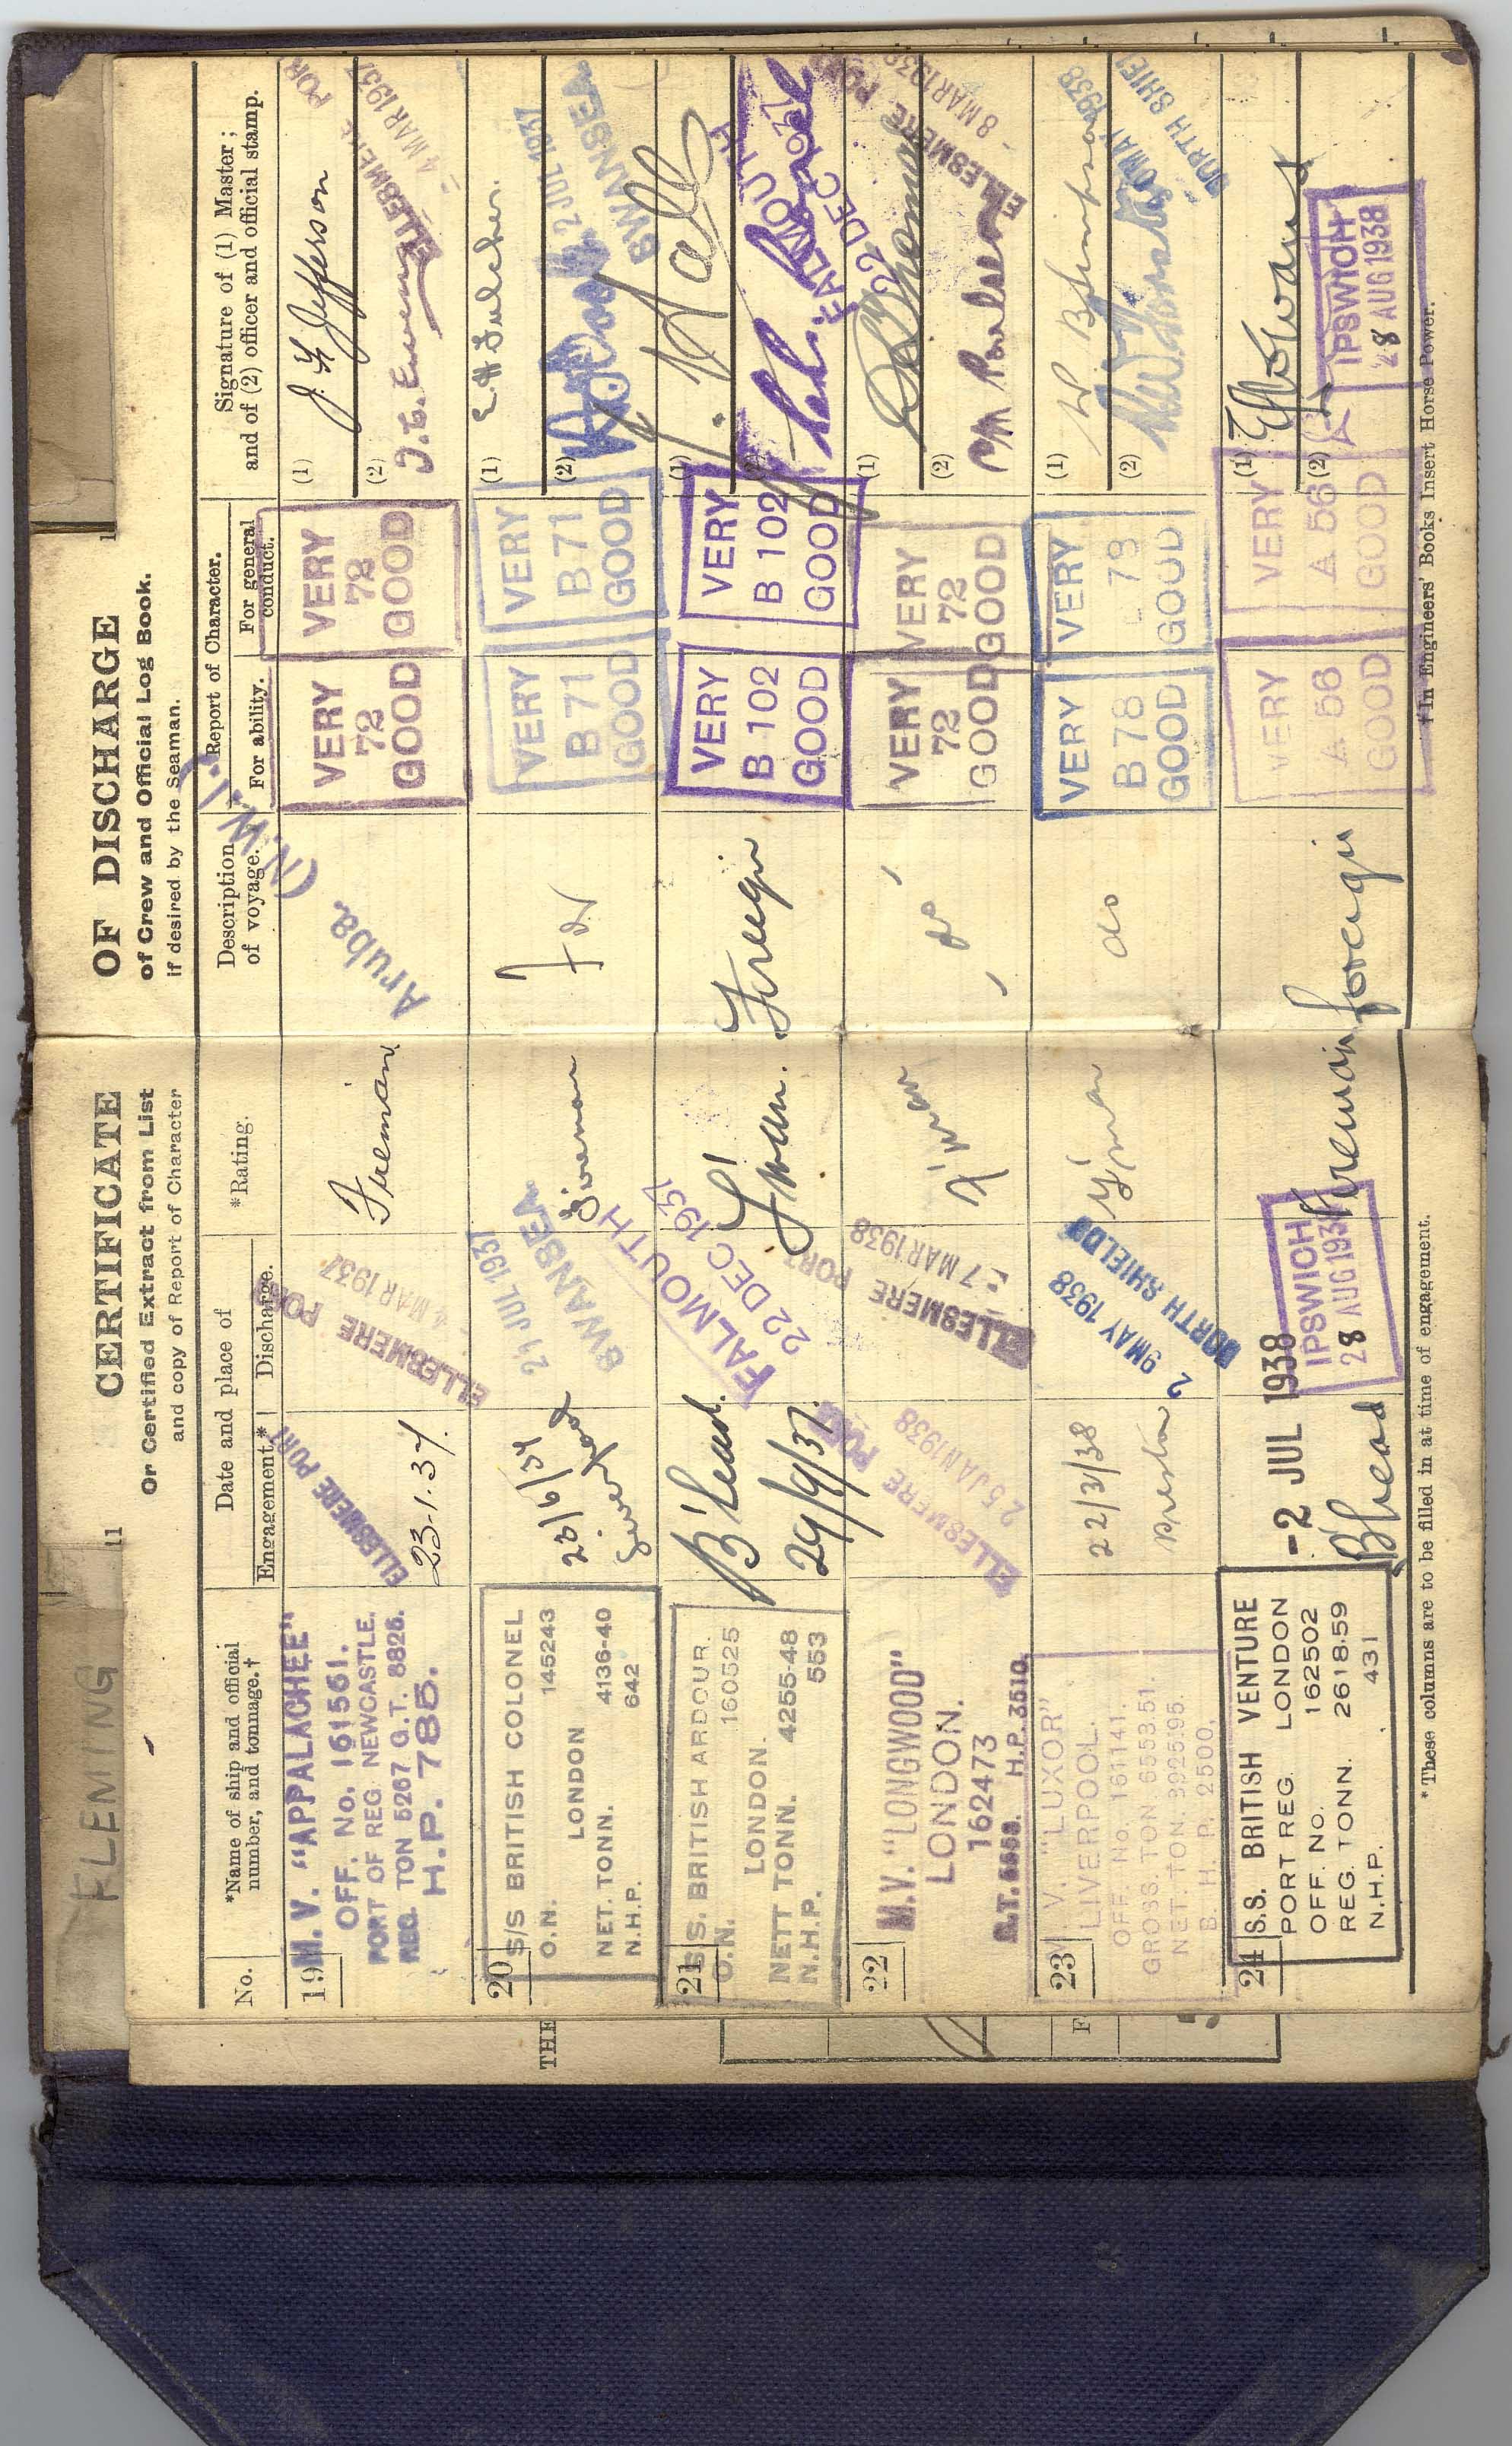 FLEMING
11
CERTIFICATE OF DISCHARGE
Or Certified Extract from List of Crew and Official Log Book.
and copy of Report of Character if desired by the Seaman.
No.
*Name of ship and official number, and tonnage.†
Date and place of
Engagement.*
Discharge.
*Rating.
Description of voyage.
Report of Character.
For ability.
For general conduct.
Signature of (1) Master; and of (2) officer and official stamp.
19
M.V. "APPALACHEE"
OFF. No. 161561.
PORT OF REG. NEWCASTLE.
REG. TON 5267 G.T. 8826.
H.P. 785.
ELLESMERE PORT
23.1.37.
ELLESMERE PORT
4 MAR 1937
Fireman
Aruba. (N.W.I.)
VERY 72 GOOD
VERY 72 GOOD
(1) J. Jefferson
(2)
ELLESMERE POR
4 MAR 1937
20
S/S BRITISH COLONEL
O.N. 145243
LONDON
NET. TONN. 4136-40
N.H.P. 642
23/6/37
Liverpool
21 JUL 1937
SWANSEA
Fireman
VERY B 71 GOOD
VERY B 71 GOOD
(1)
(2)
2 JUL 1937
SWANSEA
21
S.S. BRITISH ARDOUR.
O.N. 160525
LONDON.
NETT TONN. 4255-48
N.H.P. 553
B'head.
29/9/37.
FALMOUTH
22 DEC 1937
F'man.
Foreign
VERY B 102 GOOD
VERY B 102 GOOD
(1)
FALMOUTH
22 DEC
22
M.V. "LONGWOOD"
LONDON.
162473
H.P. 3510.
ELLESMERE PORT
25 JAN 1938
ELLESMERE PORT
7 MAR 1938
F'man
do
VERY 72 GOOD
VERY 72 GOOD
(1)
(2)
ELLESMERE PORT
8 MAR 1938
23
M.V. "LUXOR"
LIVERPOOL.
OFF. No. 161141.
GROSS. TON. 6553.51.
NET. TON. 3925.95.
B. H. P. 2500.
22/3/38
Preston
29 MAY 1938
NORTH SHIELDS
F'man
do
VERY B 78 GOOD
VERY 78 GOOD
(1)
(2)
1938
NORTH SHIEL
24
S.S. BRITISH VENTURE
PORT REG. LONDON
OFF. NO. 162502
REG. TONN. 2618.59
N.H.P. 431
-2 JUL 1938
B'head
IPSWICH
28 AUG 1938
Fireman
foreign
VERY A 56 GOOD
VERY A 56 GOOD
(1) Evans
(2)
IPSWICH
28 AUG 1938
*These columns are to be filled in at time of engagement.
†In Engineers' Books Insert Horse Power.
THE
F